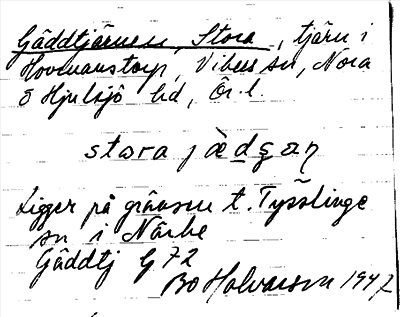 Gäddtjärnen, Stora, tjärn i
Hovmanstorp, Vikers sn, Nora
o Hjulsjö hd, Ör. l
stora jädgaŋ
Ligger på gränsen t. Tysslinge
sn i Närke
Gäddtj G 72
Bo Halvarson 1947